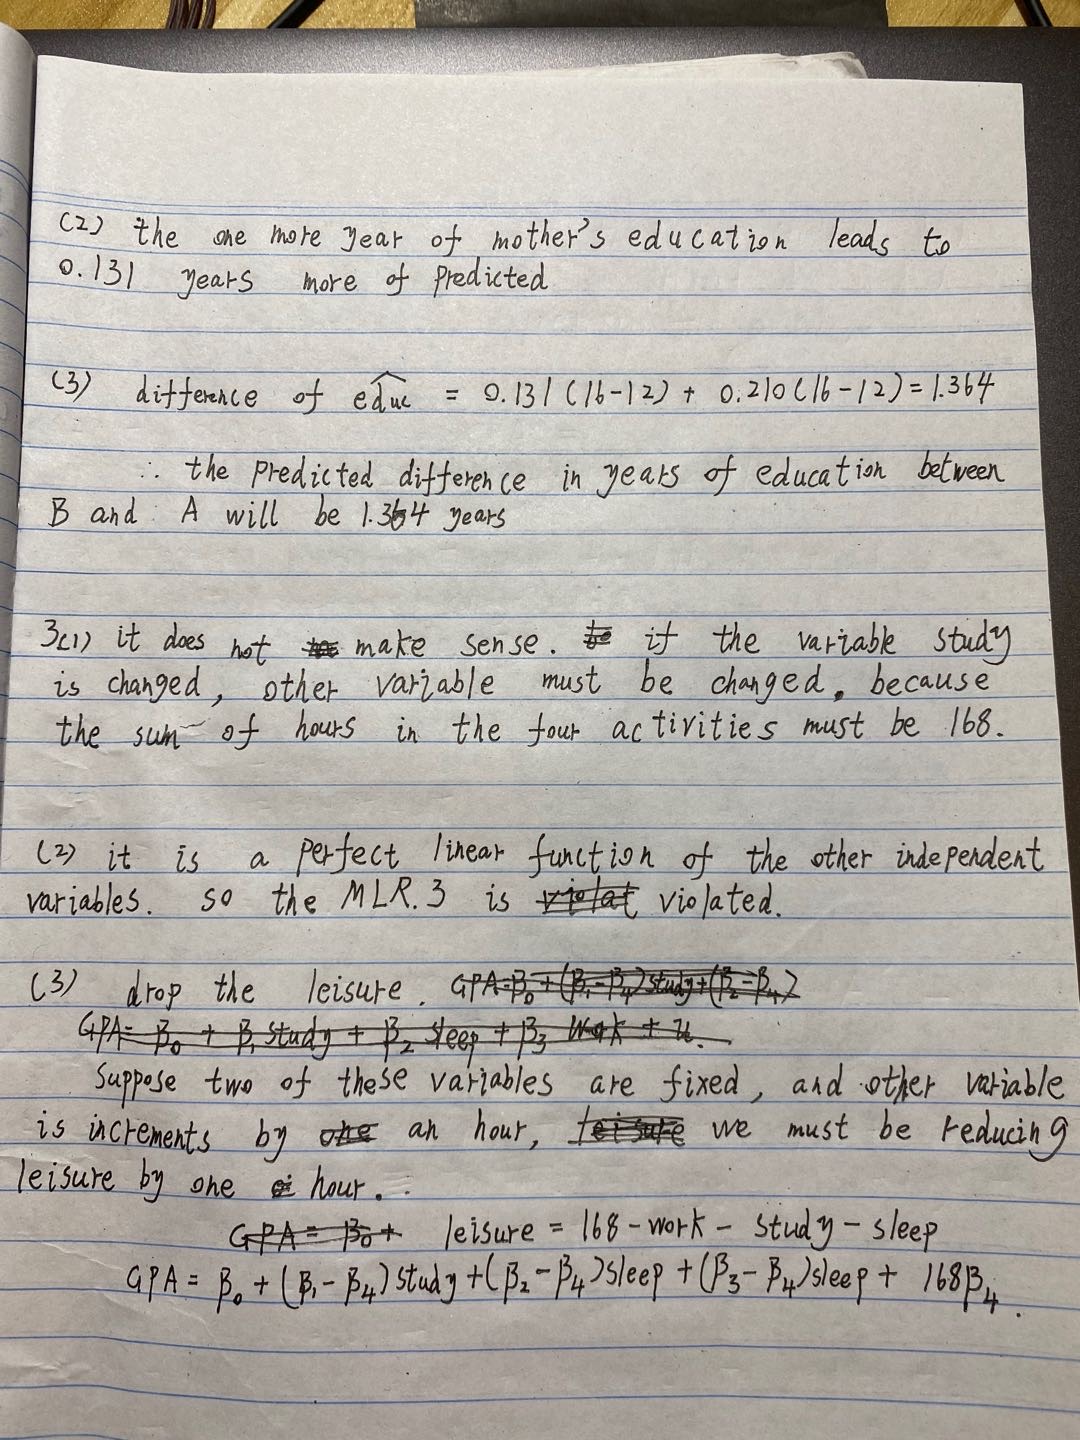 (2) the one more year of mother's education leads to
0.131 years more of predicted
(3) difference of \widehat{educ} = 0.131(16-12) + 0.210(16-12) = 1.364
∴ the predicted difference in years of education between
B and A will be 1.364 years
3(1) it does not make sense. if the variable study
is changed, other variable must be changed. because
the sum of hours in the four activities must be 168.
(2) it is a perfect linear function of the other independent
variables. so the MLR.3 is violat violated.
(3) drop the leisure. GPA=β₀+(β₁-β₄)study+(β₂-β₄)
GPA= β₀ + β₁ study + β₂ sleep + β₃ work + u.
Suppose two of these variables are fixed, and other variable
is increments by one an hour, leisure we must be reducing
leisure by one hour.
GPA = β₀ + leisure = 168 - work - study - sleep
GPA = β₀ + (β₁-β₄)study + (β₂-β₄)sleep + (β₃-β₄)sleep + 168β₄.